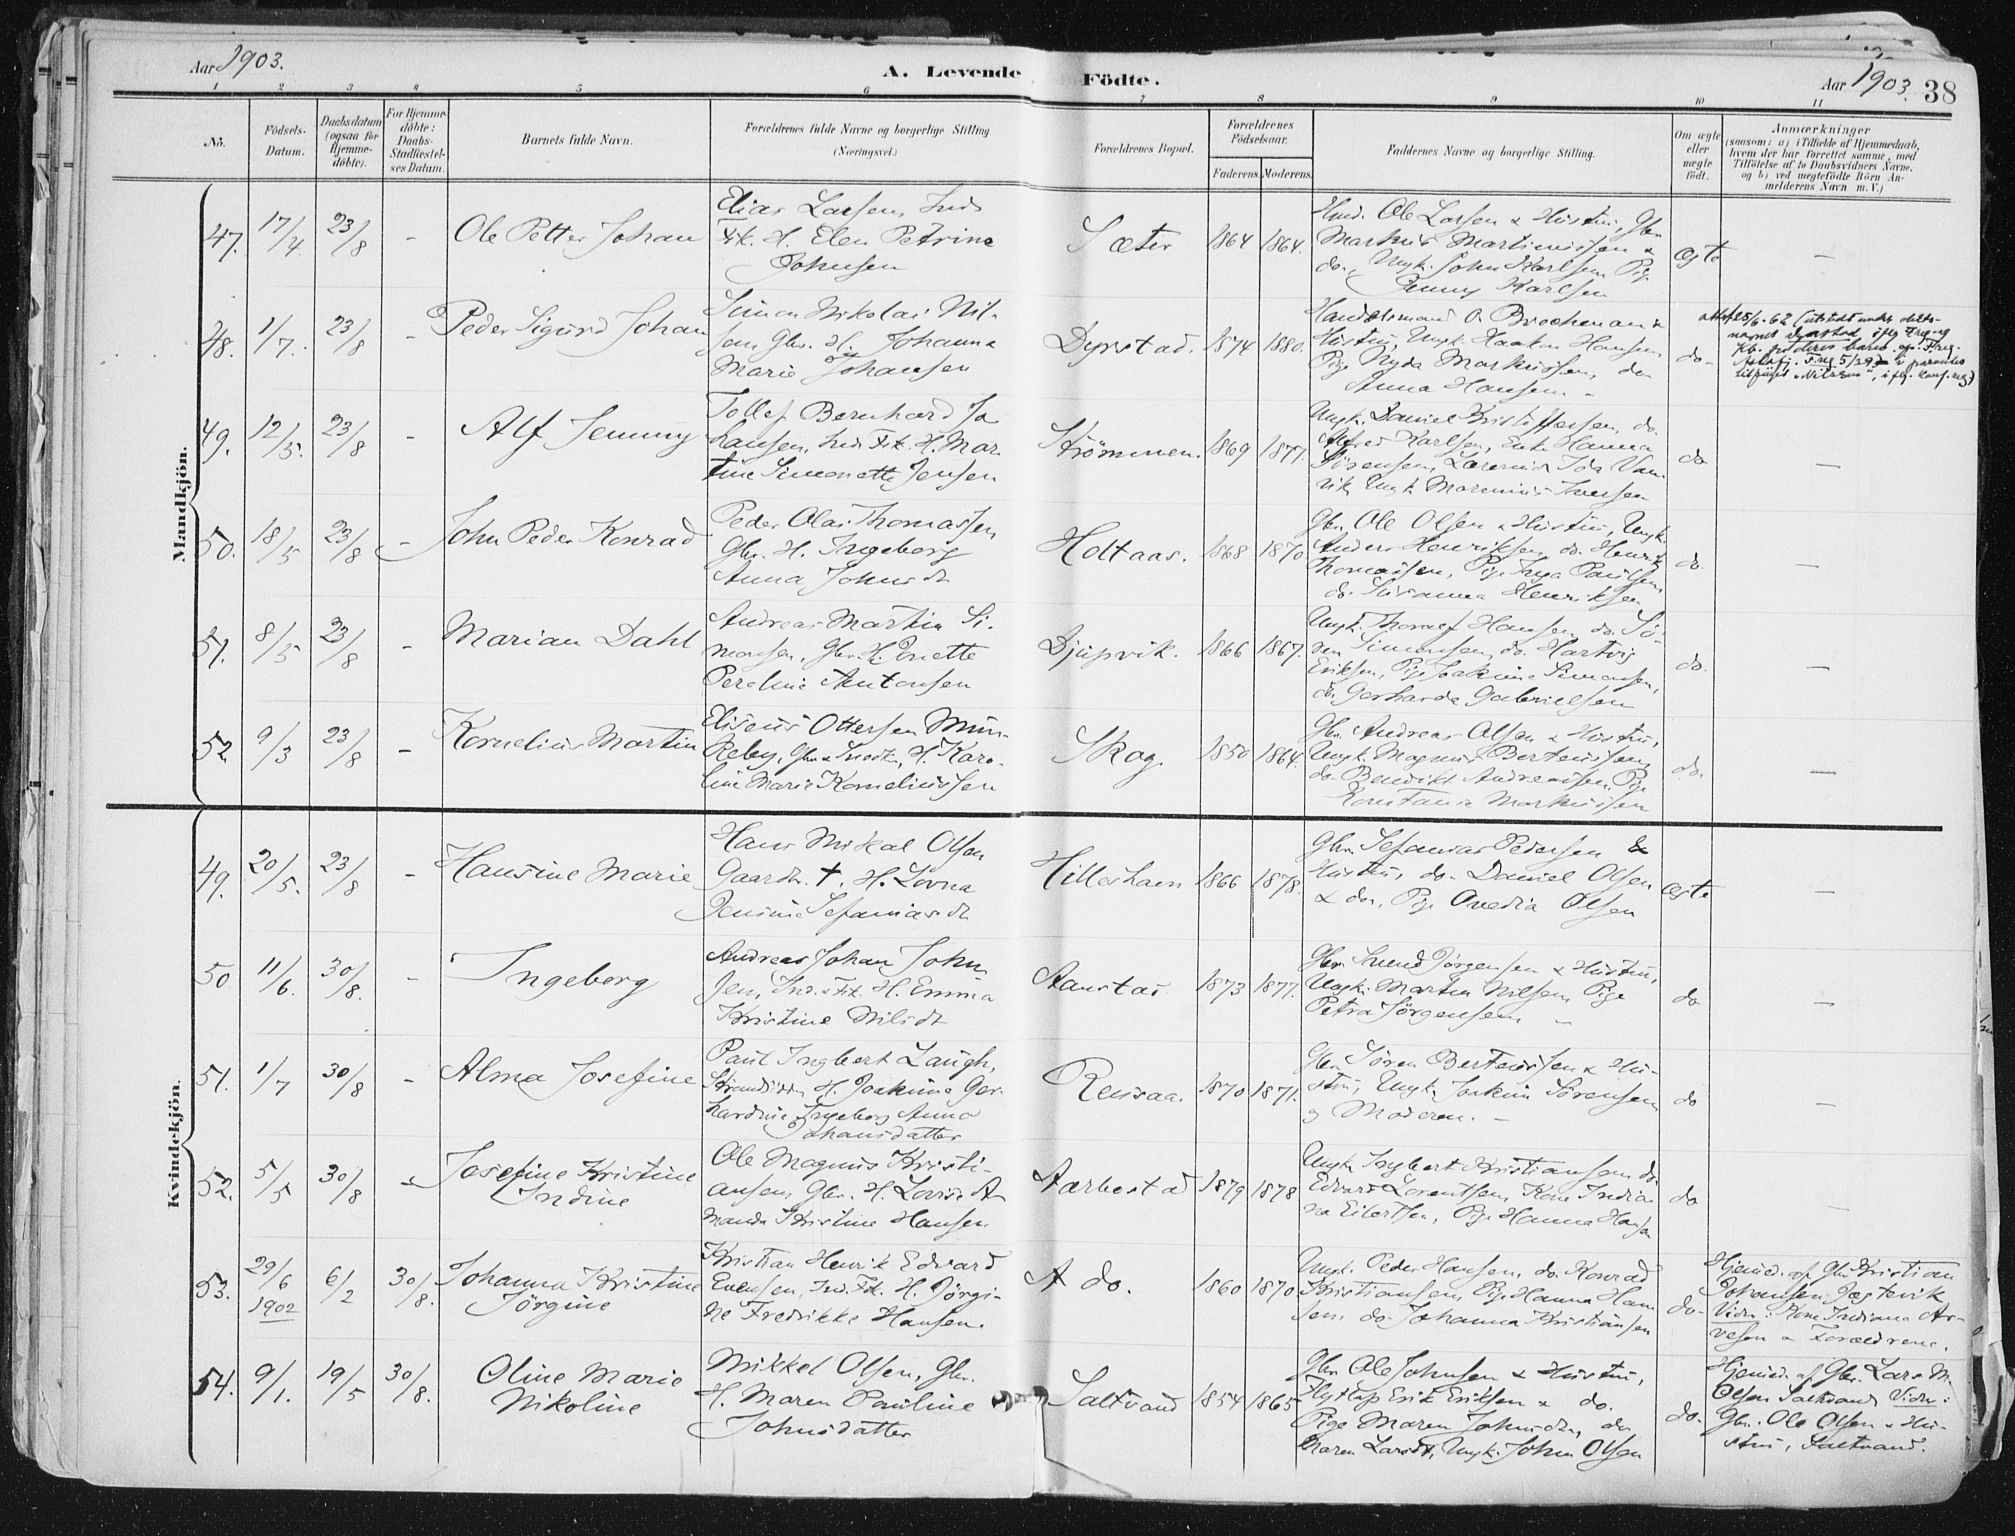 Aar 1903.
A. Levende Födte.
Aar 1903.
38
1 2 3 4 5 6 7 8 9 10 11
No.
Födsels-
Datum.
Daabsdatum
(ogsaa for
Hjemme-
döbte).
For Hjemme-
döbte:
Daabs-
Stadfæstel-
ses Datum.
Barnets fulde Navn.
Forældrenes fulde Navne og borgerlige Stilling.
(Næringsvei.)
Forældrenes Bopæl.
Forældrenes
Födselsaar.
Faderens. Moderens.
Faddernes Navne og borgerlige Stilling.
Om ægte
eller
uægte
födt.
Anmærkninger
(saasom: a) i Tilfælde af Hjemmedaab,
hvem der har forrettet samme, med
Tilföielse af to Daabsvidners Navne,
og b) ved uægtefödte Börn An-
melderens Navn m. V.)
Mandkjön.
47. 17/4. 23/8 - Ole Petter Johan
Elias Larsen, Ind.
Fisk. H. Elen Petrine
Johnsen
Sæter 1864 1864.
Ole Larsen & Hustru, Gbr.
Markus Martinussen &
do., Ungk. John Karlsen, Pige
Jenny Karlsen
ægte —
48. 1/7. 23/8 - Peder Sigurd Johan
Simon Nikolai Nil-
sen, Gbr. H. Johanna
Marie Johansen
Dyrstad. 1874 1880.
Handelsmand O. Brochmann &
Hustru, Ungk. Haakon Hansen,
Pige Nyda Markussen, do
Anna Hansen -
do-
49. 12/5. 23/8 - Alf Jenny
Tollef Bernhard Jo
hansen, Ind. Fisk. H. Mar
tine Simonette Jensen
Strömmen. 1869 1877.
Ungk. Daniel Kristoffersen, do.
Alfred Karlsen, Enke Hanna
Sörensen, Lærerinde Ida
Ungk Marenius Iversen
do —
50. 18/5 23/8 - John Peder Konrad
Peder Olai Thomassen
Gbr. H. Ingeborg
Anna Johnsdt
Holtaas. 1868 1870.
Gbr. Ole Olsen & Hustru, Ungk.
Anders Henriksen, do. Henrik
Thomassen, Pige Inga Paulsen
do. Susanna Henriksen
do. —
51. 8/5 23/8 - Marian Dahl
Andreas Martin Si-
monsen, Gbr. H. Anette
Peroline Antonsen
Djupvik. 1866 1867.
Ungk. Hansen, do. Sö-
ren Simonsen, do. Hartvig
Eriksen, Pige Joakime Simonsen,
do. Gerharda Gabrielsen
do. —
52. 9/3 23/8 - Kornelius Martin
Eliseus Ottersen Mun-
Reby, Gbr & H. Karo-
line Marie Korneliussen
Skog. 1850 1864.
Gbr. Andreas Olsen & Hustru,
Ungk. Magnus Berteussen,
do Benedikt Andreassen, Pige
Konstance Markussen
do. —
Kvindekjön.
49. 20/5. 23/8 - Hansine Marie
Hans Mikal Olsen
Gaardbr. †. H. Lovna
Jensine Sefaniasdt
Hilleshavn 1866 1878.
Gbr. Sefanias Pedersen &
Hustru, do. Daniel Olsen
& do., Pige Ovedia Olsen
ægte —
50 11/6. 30/8. - Ingeborg
Andreas Johan John-
sen, Ind. & Fisk. H. Emma
Kristine Nilsdt
Aanstad 1873 1877.
Gbr. Svend Jörgensen & Hustru,
Ungk. Martin Nilsen, Pige
Petra Jörgensen. -
do —
51. 1/7 30/8 - Alma Josefine
Paul Ingbert Laugh,
H. Joakime Ger-
hardine Ingeborg Anna
Johansdatter
Rensaa. 1870 1871.
Gbr. Sören Berteussen & Hu-
stru, Ungk. Joakim Sörensen
og Moderen. -
do —
52. 5/5 30/8 - Josefine Kristine
Indine
Ole Magnus Kristi-
ansen, Gbr. H. Lovise A
manda Kristine Hansen
Aarbostad 1879 1878
Ungk Ingbert Kristiansen, do.
Edvard Lorentsen, Kone India
na Eilertsen, Pige Hanna Hansen
do —
53. 29/6 1902 6/2 30/8. Johanna Kristine
Jörgine
Kristian Henrik Edvard
Evensen, Ind. Fisk. H. Jörgi-
ne Fredrikke Hansen.
A do. 1860 1870
Ungk. Peder Hansen, do. Konrad
Kristiansen, Pige Hanna Han
sen, do Johanna Kristiansen
do-
Hjemmed. af Gbr. Kristian
Johansen
Vidn: Kone Indiana Ar-
nesen & Forældrene.
54. 9/1. 19/5 30/8. Oline Marie
Nikoline
Mikkel Olsen, Gbr.
H. Maren Pauline
Johnsdatter
Saltvand 1854 1865
Gbr. Ole Johnsen & Hustru,
Erik Eriksen & do.
Pige Maren Johnsdt, do
Maren Larsdt, Ungk. John Olsen
do.
Hjemmed. af Gbr. Lars M.
Olsen Saltvand Vidn:
Gbr. Ole Olsen & Hu-
stru, Saltvand.